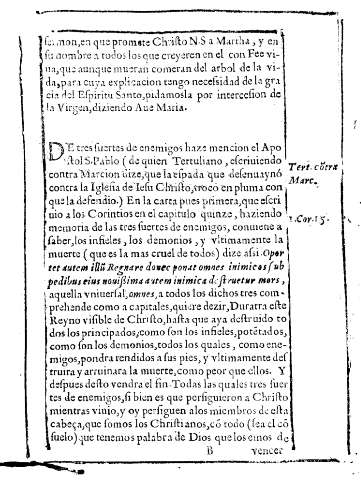 sermon, en que promete Christo N.S a Martha, y en
su nombre a todos los que creyeren en el con Fee vi
ua, que aunque mueran comeran del arbol de la vi
da, para cuya explicacion tengo necessidad de la gra
cia del Espiritu Santo, pidamosla por intercesion de
la Virgen, diziendo Aue Maria.
DE tres suertes de enemigos haze mencion el Apo
stol S. Pablo (de quien Tertuliano, escriuiendo
contra Marcion dize, que la espada que desenuaynó
contra la Iglesia de Iesu Christo, trocò en pluma con
que la defendio.) En la carta pues primera, que escri
uio a los Corintios en el capitulo quinze, haziendo
memoria de las tres suertes de enemigos, conuiene a
saber, los infieles, los demonios, y vltimamente la
muerte (que es la mas cruel de todos) dize assi. Opor
tet autem illũ Regnare donec ponat omnes inimicos sub
pedibus eius nouissima autem inimica destruetur mors,
aquella vniuersal, omnes, a todos los dichos tres com
prehende como a capitales, quire dezir, Durarra este
Reyno visible de Christo, hasta que aya destruido to
dos los principados, como son los infieles, potẽtados,
como son los demonios, todos los quales, como ene-
migos, pondra rendidos a sus pies, y vltimamente des
truira y arruinara la muerte, como peor que ellos. Y
despues desto vendra el fin. Todas las quales tres suer
tes de enemigos, si bien es que persiguieron a Christo
mientras viuio, y oy persiguen alos miembros de esta
cabeça, que somos los Christianos, cõ todo (sea el cõ
suelo) que tenemos palabra de Dios que los emos de
B vencer
Tert. cõtra
Marc.
1. Cor. 15.